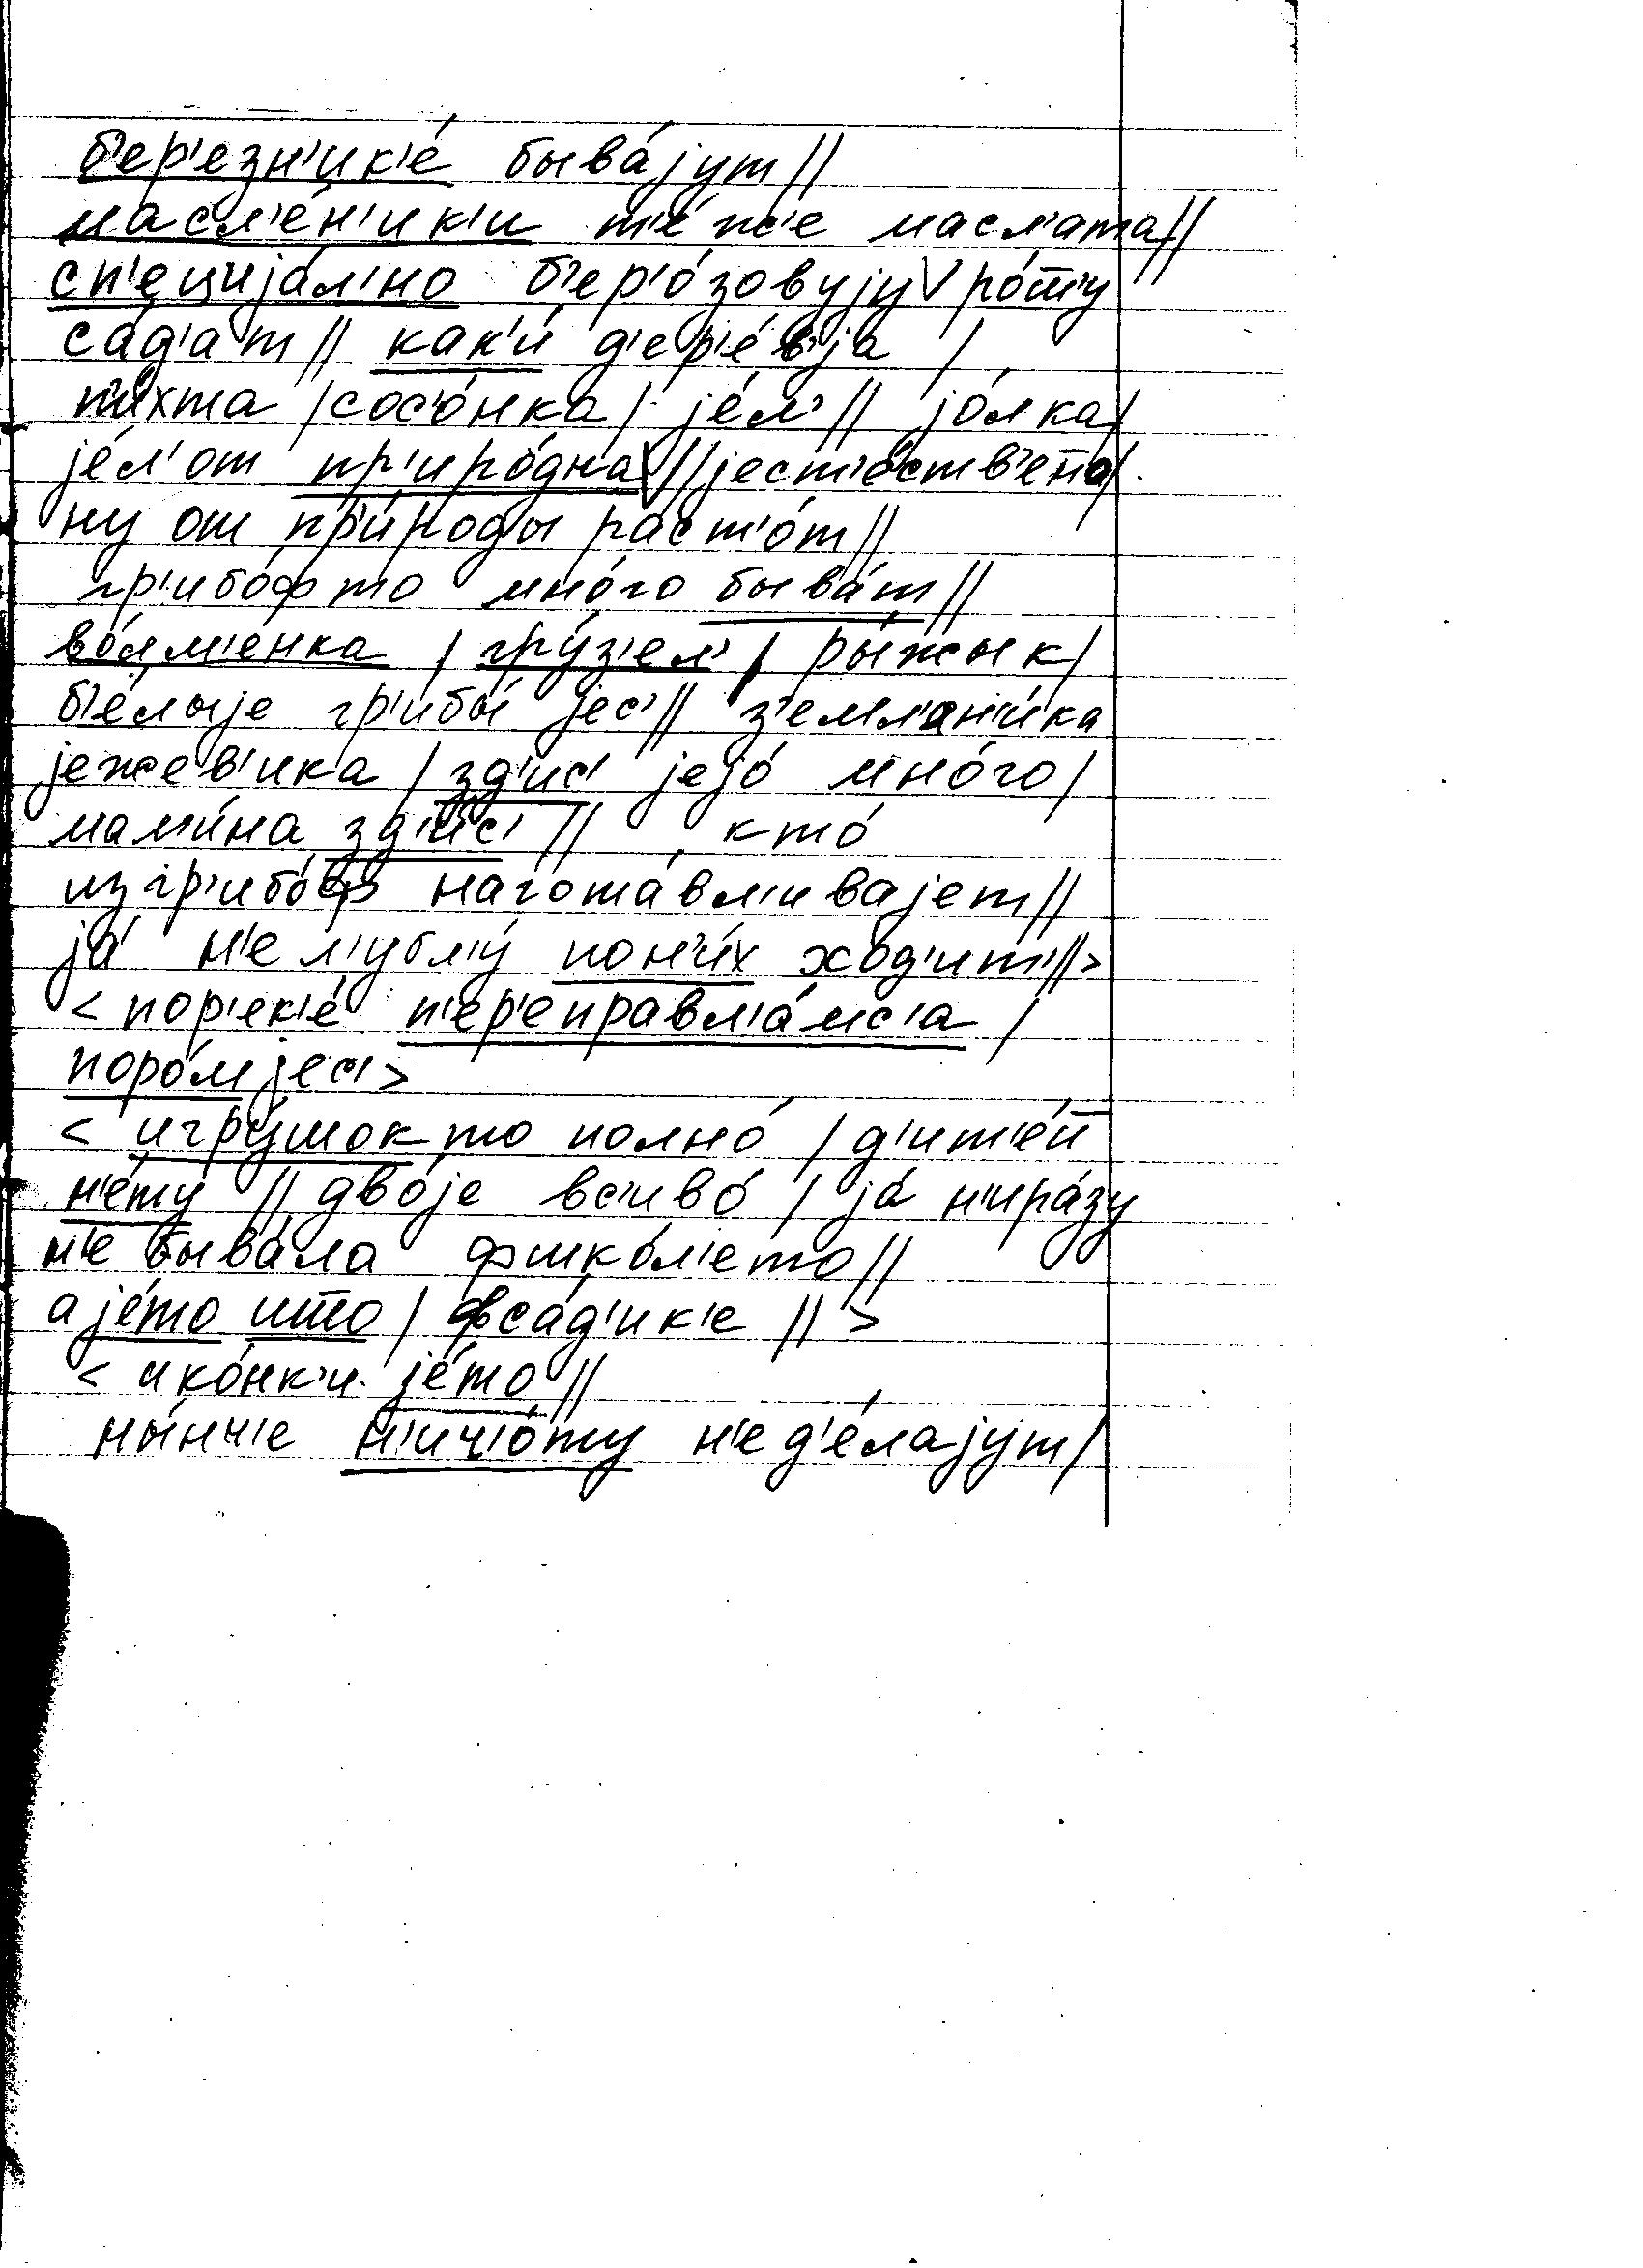 б'ер'езн'ик'е́ быва́јут//
масл'е́н'ик'и т'е́ же масл'ата//
сп'ецијáл'но б'ер'о́зовују рóт'у
сáд'ат// как'и́ д'ер'е́в'ја /
п'и́хта /сос'óнка/ је́л'// јóлка/
је́л'от пр'ирóдна//јест'е́ств'ено/
ну от пр'и́роды раст'óт//
гр'ибóфто мнóго быва́т//
вóлм'енка / гру́з'ел' / ры́жык/
б'е́лыје гр'ибы́ јес'// з'емл'ан'и́ка
јежев'ика / зд'ис' јејó мнóго/
мал'и́на зд'ис' // ктó
изгр'ибóф наготáвл'ивајет//
já н'е л'убл'у́ пон'и́х ход'ит'//>
<пор'ек'е́ п'ер'еправл'áмс'а /
порóм јес'>
< игру́шокто полнó / д'ит'е́й
н'е́ту // двóје вс'ивó / já н'ирáзу
н'е бывáла фшкóл'ето//
а је́то што / фсáд'ик'е // >
< икóнк'и је́то //
ны́нч'е н'ич'óту н'е д'е́лајут/